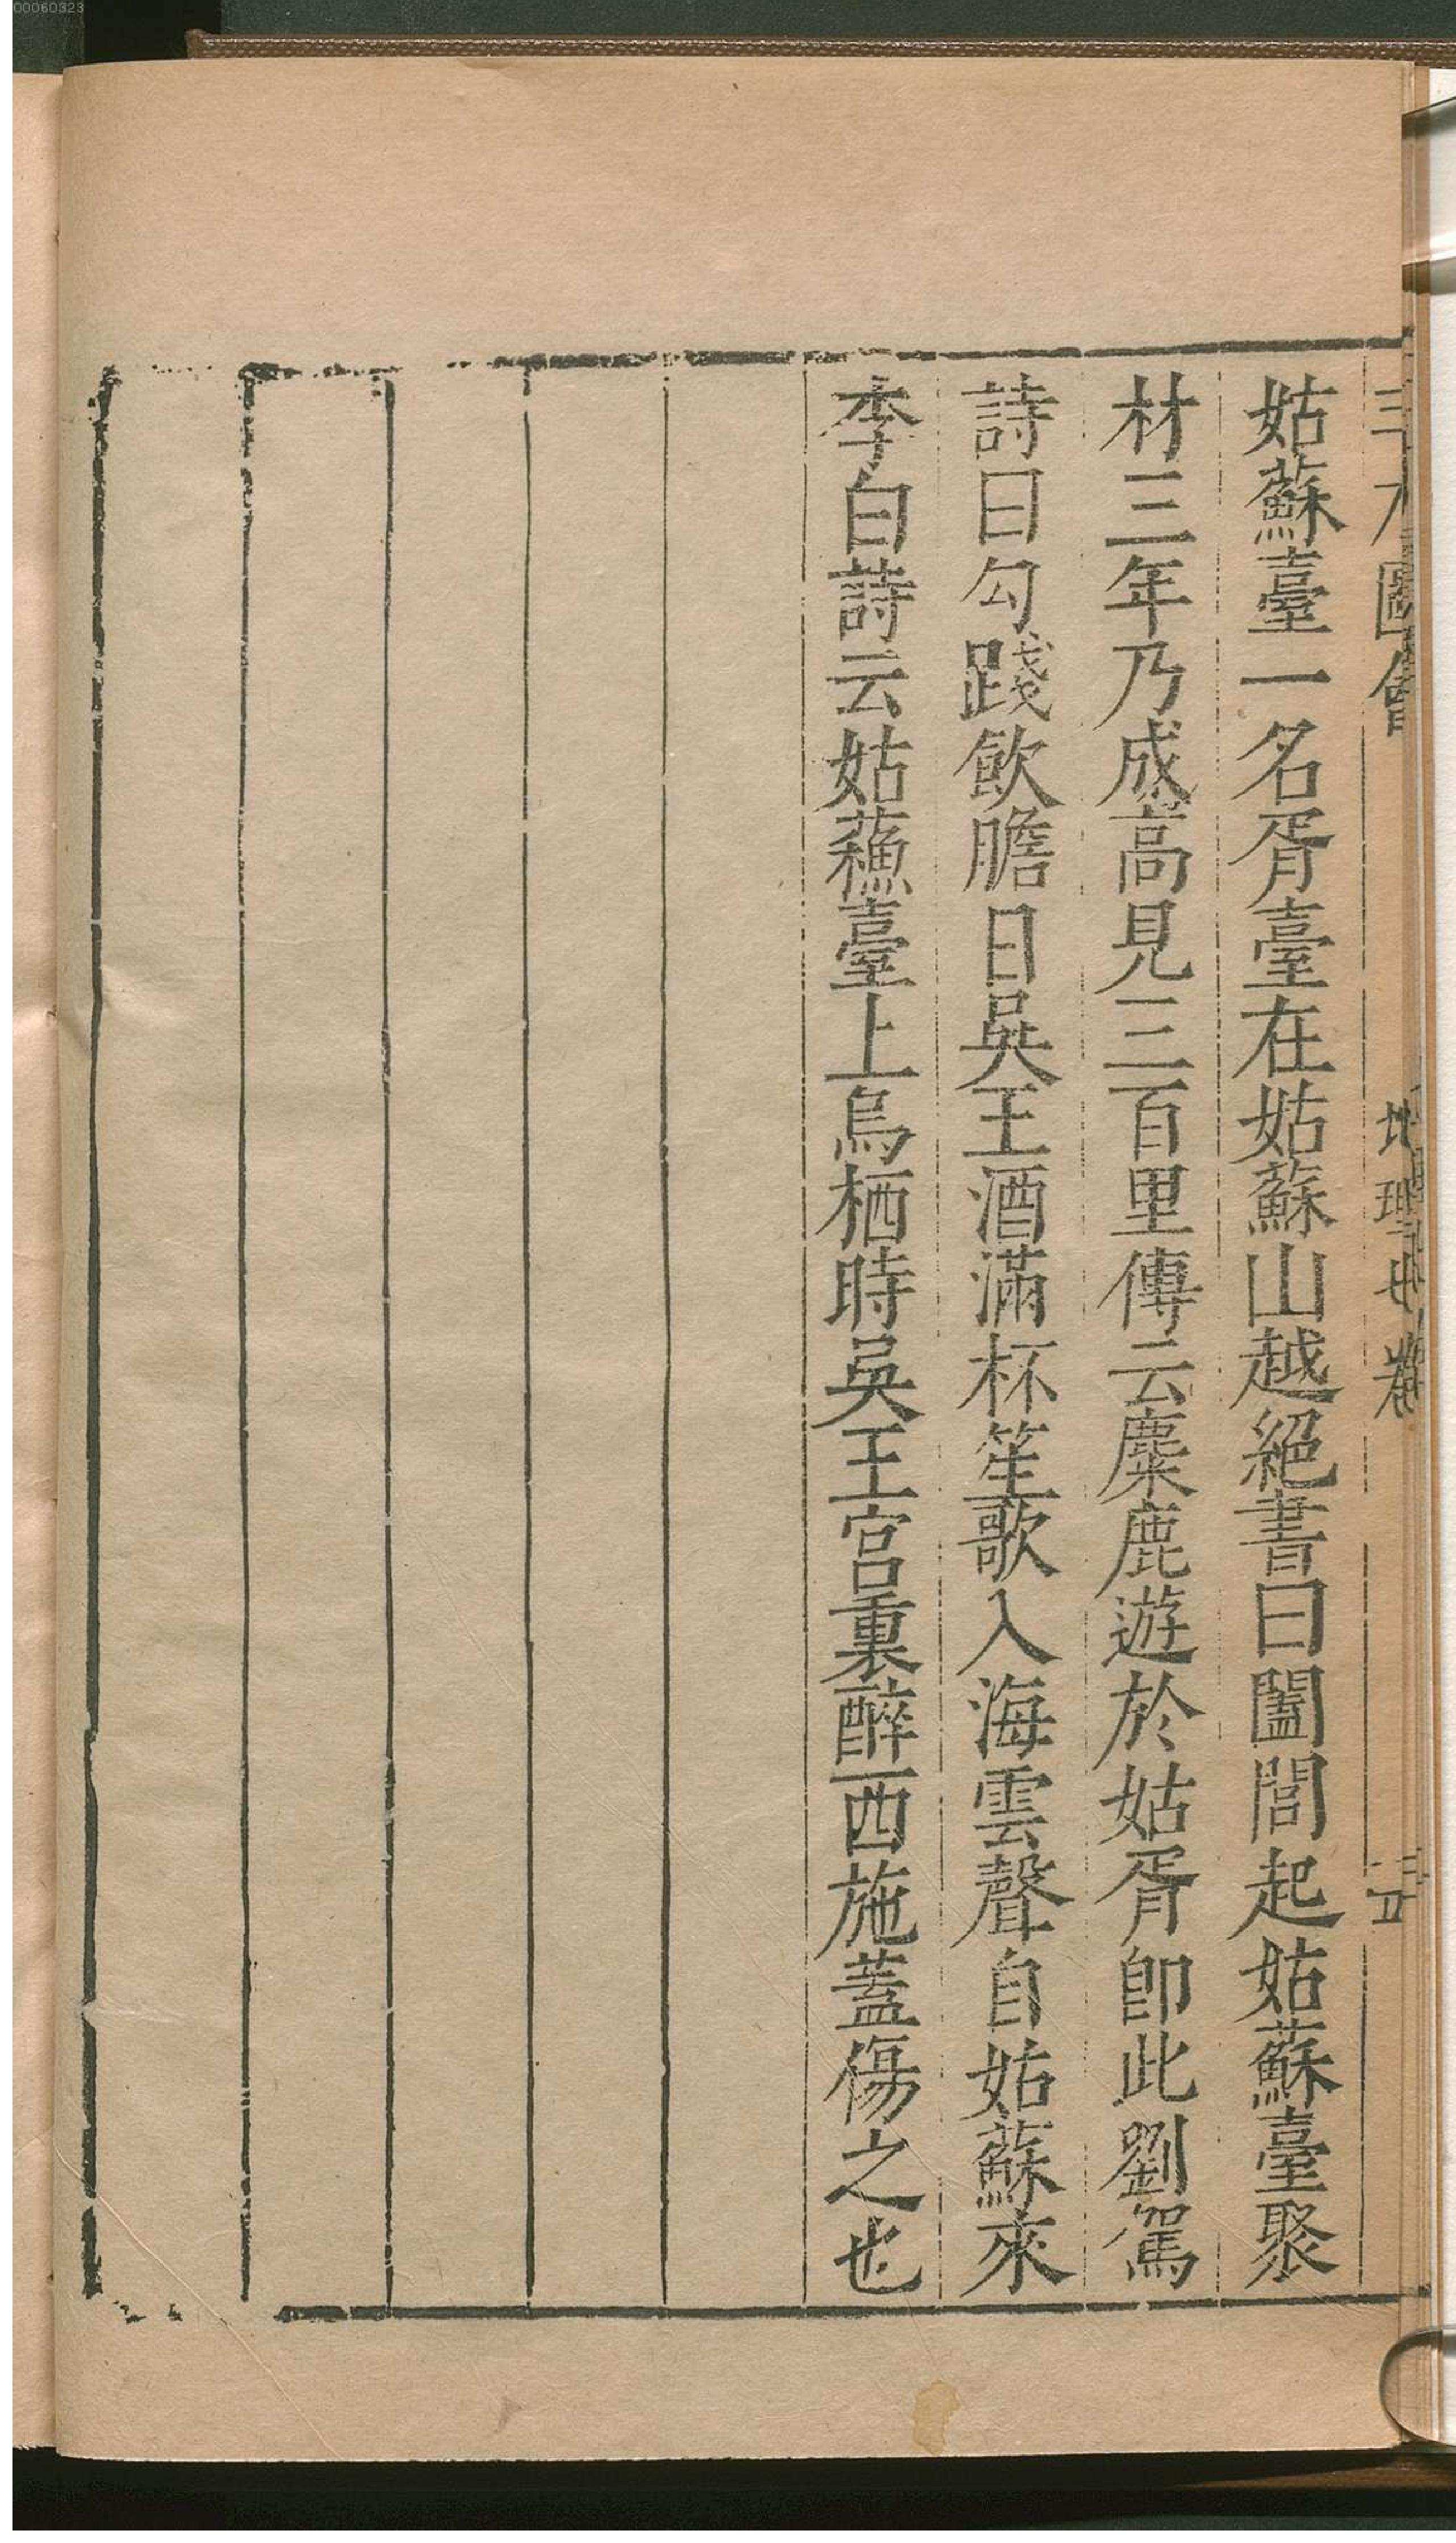 姑蘇臺一名胥臺在姑蘇山越絕書曰闔閭起姑蘇臺聚
材三年乃成高見三百里傳云麋鹿遊於姑胥卽此劉駕
詩曰勾踐飲膽日吳王酒滿杯笙歌入海雲聲自姑蘇來
李白詩云姑蘓臺上烏栖時吳王宮裏醉西施蓋傷之也
00060323